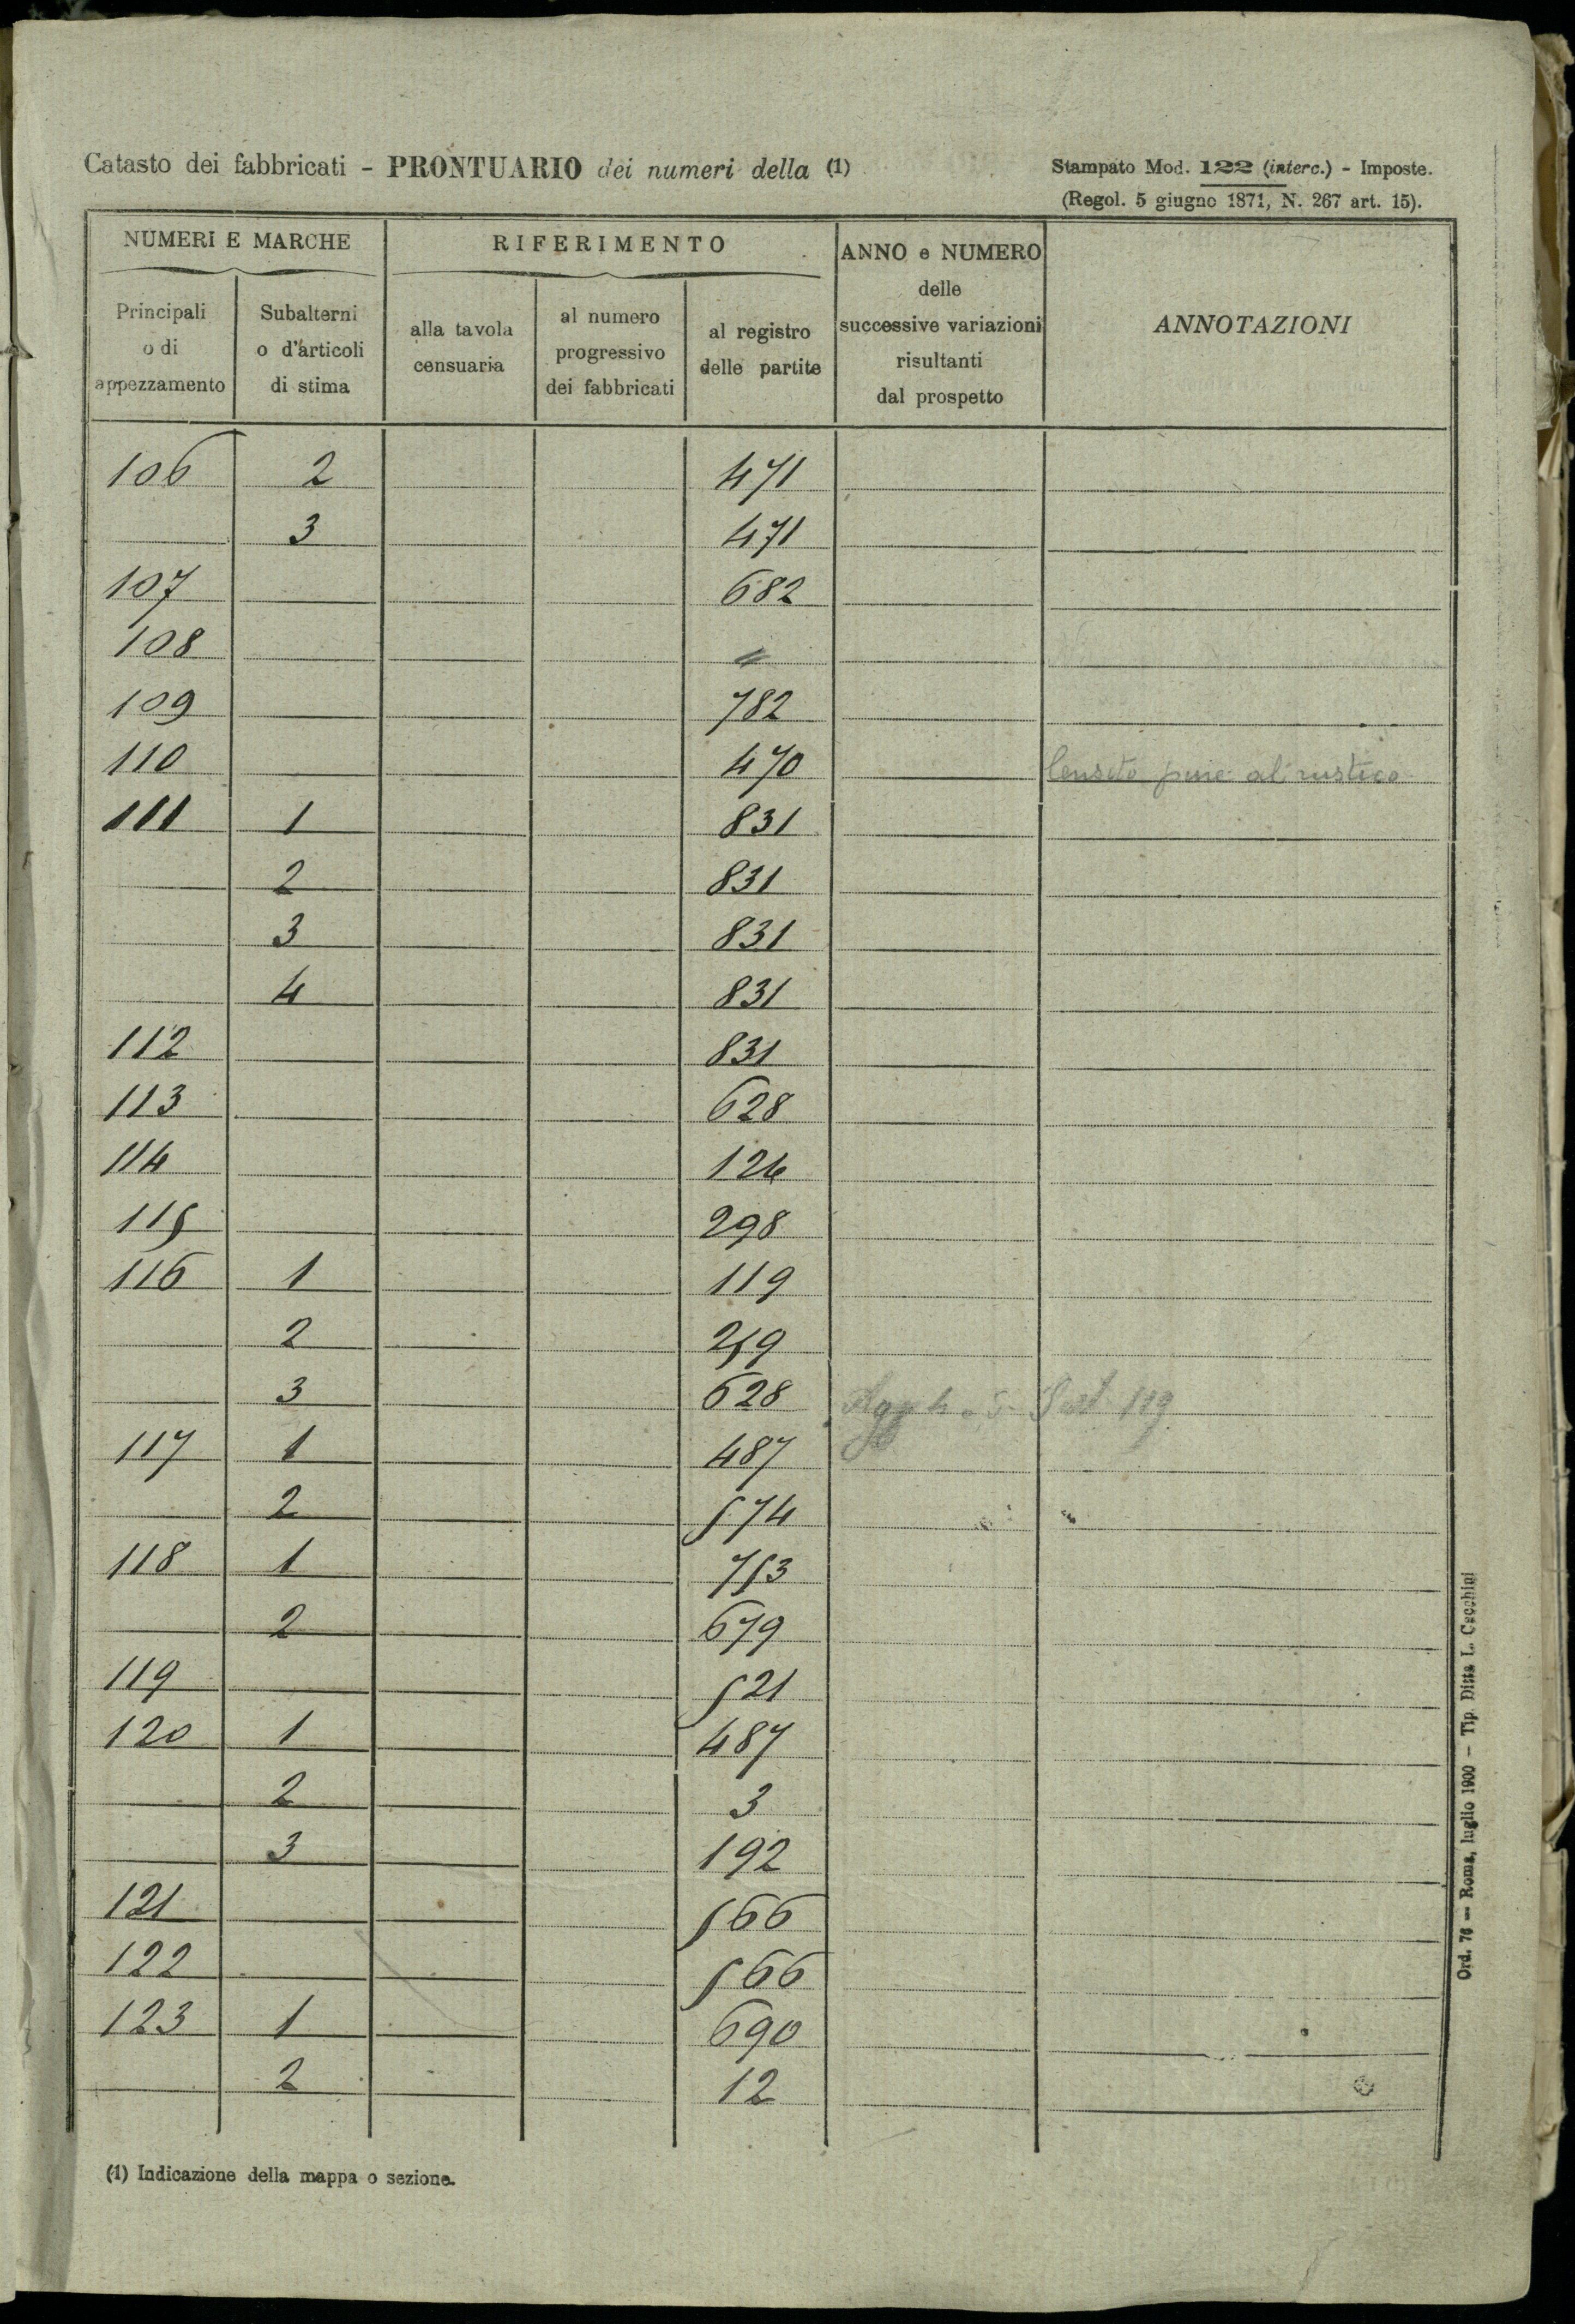 Catasto dei fabbricati - PRONTUARIO dei numeri della (1)
Stampato Mod. 122 (interc.) - Imposte.
(Regol. 5 giugno 1871, N. 267 art. 15).
NUMERI E MARCHE
RIFERIMENTO
ANNO e NUMERO
delle
successive variazioni
risultanti
dal prospetto
ANNOTAZIONI
Principali
o di
appezzamento
Subalterni
o d'articoli
di stima
alla tavola
censuaria
al numero
progressivo
dei fabbricati
al registro
delle partite
106 2 471
3 471
107 682
108 "
109 782
110 470 Censito pure al rustico
111 1 831
2 831
3 831
4 831
112 831
113 628
114 124
115 298
116 1 119
2 259
3 628 119
117 1 487
2 574
118 1 753
2 679
119 521
120 1 487
2 3
3 192
121 566
122 566
123 1 690
2 12
(1) Indicazione della mappa o sezione.
Ord. 76 — Roma, luglio 1900 — Tip. Ditta L. Cecchini